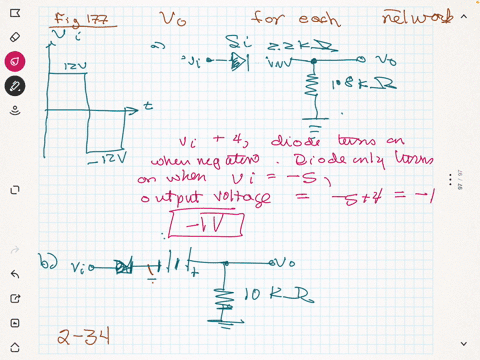 Fig 177 Vo for each network
Vi
12V
t
-12V
a)
Si 2.2 KΩ
Vi Vo
10.8 KΩ
Vi + 4, diode turns on
when negative. Diode only turns
on when Vi = -5,
output voltage = -5+4 = -1
-1V
b) Vi + Vo
10 KΩ
2-34